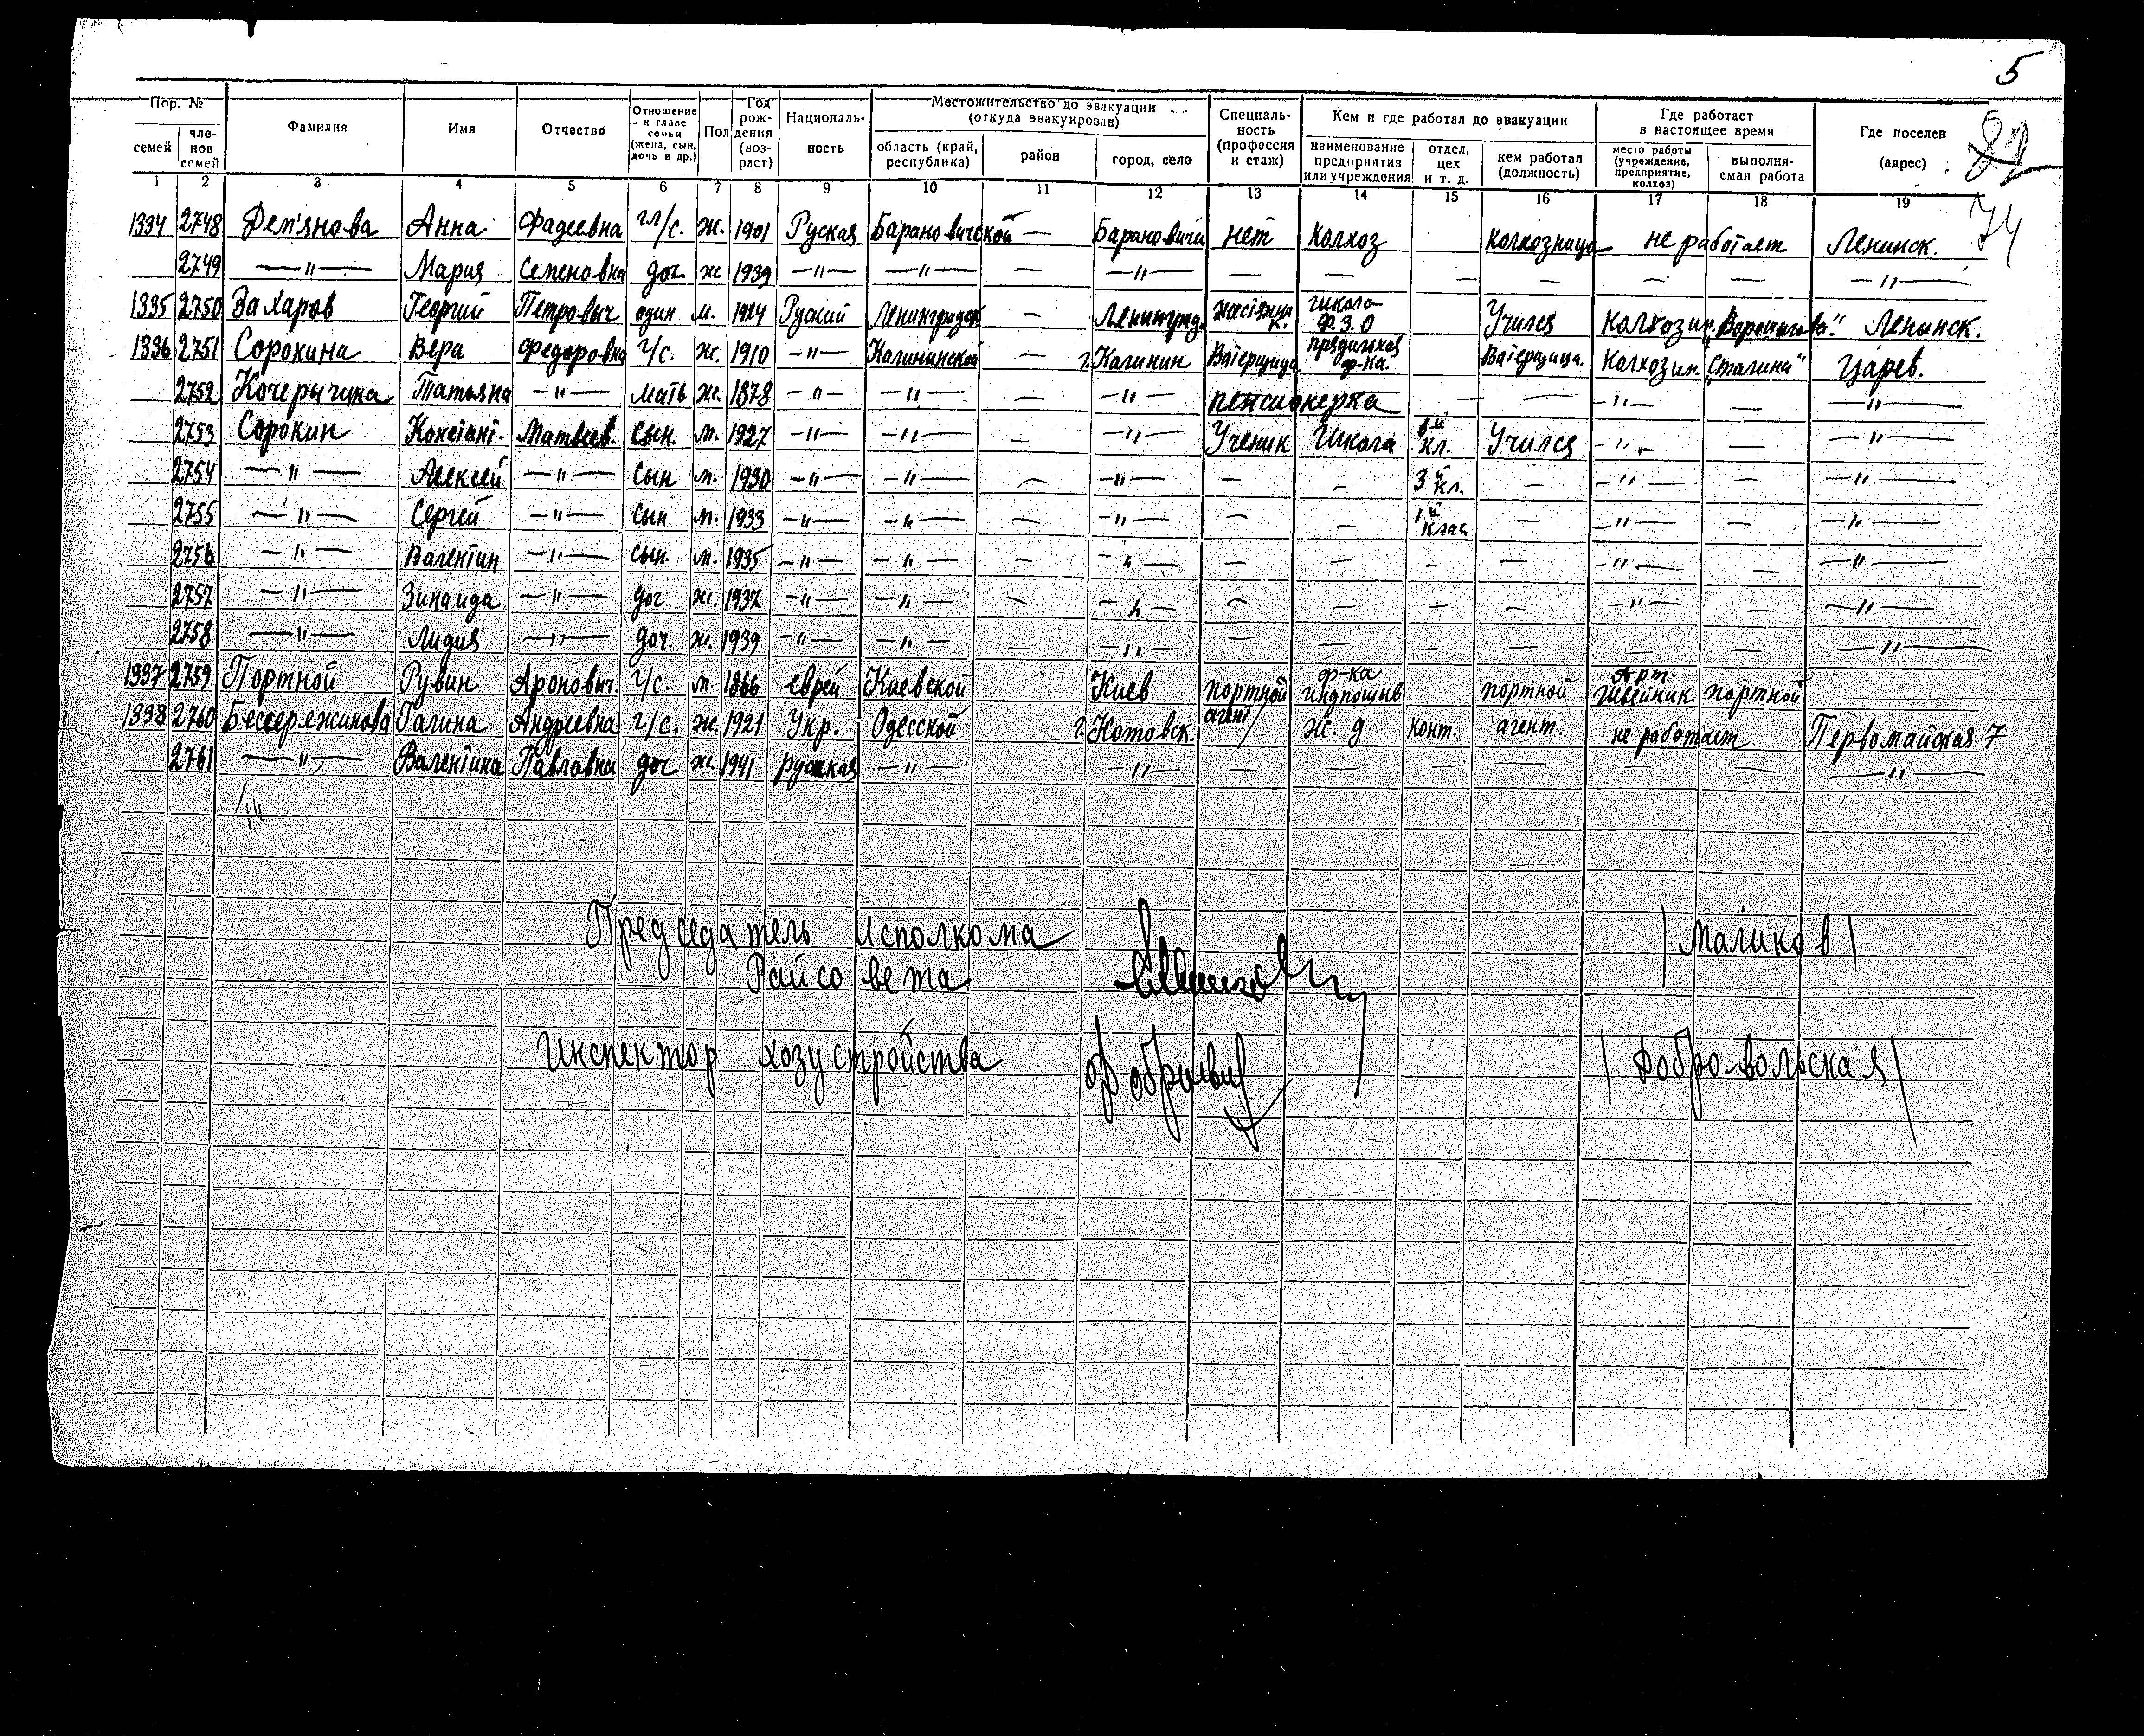 5
82
74
Пор. № Фамилия Имя Отчество Отношение к главе семьи (жена, сын, дочь и др.) Пол Год рождения (возраст) Националь-ность Местожительство до эвакуации (откуда эвакуирован) Специаль-ность (профессия и стаж) Кем и где работал до эвакуации Где работает в настоящее время Где поселен (адрес)
семей чле-нов семей область (край, республика) район город, село наименование предприятия или учреждения отдел, цех и т. д. кем работал (должность) место работы (учреждение, предприятие, колхоз) выполня-емая работа
1 2 3 4 5 6 7 8 9 10 11 12 13 14 15 16 17 18 19
1334 2748 Дем'янова Анна Фадеевна гл/с. ж. 1901 Руская Барановичской — Барановичи нет колхоз колхозница не работает Ленинск.
2749 —"— Мария Семеновна доч. ж 1939 —"— —"— — —"— — — — — — — —"—
1335 2750 Захаров Георгий Петровыч один м. 1924 Руский Ленинградск — Ленинград. школа Ф.З.О Учился колхоз им. „Ворошилова" Ленинск.
1336 2751 Сорокина Вера Федоровна г/с. ж. 1910 —"— Калининской — г. Калинин Ватерщица прядильная ф-ка. Ватерщица. колхоз им. „Сталина" Царев.
2752 Кочерыгина Татьяна —"— мать ж. 1878 —"— —"— — —"— пенсионерка — — —"— — —"—
2753 Сорокин Констант. Матвеев. сын. м. 1927 —"— —"— — —"— Ученик Школа кл. Учился —"— — —"—
2754 —"— Алексей —"— сын м. 1930 —"— —"— — —"— — — 3й кл. — —"— — —"—
2755 —"— Сергей —"— сын м. 1933 —"— —"— — —"— — — 1й клас — —"— — —"—
2756 —"— Валентин —"— сын. м. 1935 —"— —"— — —"— — — — — —"— — —"—
2757 —"— Зинаида —"— доч ж. 1937 —"— —"— — —"— — — — — —"— — —"—
2758 —"— Лидия —"— доч. ж. 1939 —"— —"— — —"— — — — — — — —"—
1337 2759 Портной Рувин Аронович. г/с. м. 1866 еврей Киевской Киев портной ф-ка индпошыв портной Арт. швейник портной
1338 2760 Бессережинова Галина Андреевна г/с. ж. 1921 Укр. Одесской г. Котовск. агент ж. д. конт. агент. не работает Первомайская 7
2761 —"— Валентина Павловна доч ж 1941 руская —"— —"— — — — — — — —"—
Председатель Исполкома
Райсовета /Маликов/
Инспектор хозустройства /Добровольская/